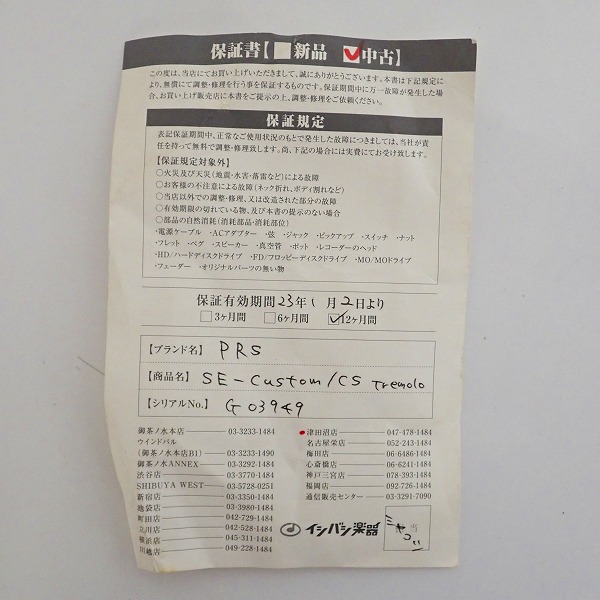 保証書【 新品 中古】
この度は、当店にてお買い上げいただきまして、誠にありがとうございます。本書は下記規定に
より、無償にて調整・修理を行う事を保証するものです。保証期間中に万一故障が発生した場
合、お買い上げ販売店に本書をご提示の上、調整・修理をご依頼ください。
保証規定
表記保証期間中、正常なご使用状況のもとで発生した故障につきましては、当社が責
任を持って無料で調整・修理致します。尚、下記の場合には実費にてお受け致します。
【保証規定対象外】
○火災及び天災(地震・水害・落雷など)による故障
○お客様の不注意による故障(ネック折れ、ボディ割れなど)
○当店以外での調整・修理、又は改造された部分の故障
○有効期限の切れている物、及び本書の提示のない場合
○部品の自然消耗(消耗部品・消耗部位)
・電源ケーブル ・ACアダプター ・弦 ・ジャック ・ピックアップ ・スイッチ ・ナット
・フレット ・ペグ ・スピーカー ・真空管 ・ポット ・レコーダーのヘッド
・HD/ハードディスクドライブ ・FD/フロッピーディスクドライブ ・MO/MOドライブ
・フェーダー ・オリジナルパーツの無い物
保証有効期間23年1月2日より
3ヶ月間 6ヶ月間 12ヶ月間
【ブランド名】 PRS
【商品名】 SE-Custom/CS Tremolo
【シリアルNo.】 G03949
御茶ノ水本店 03-3233-1484
ウインドパル
(御茶ノ水本店B1) 03-3233-1490
御茶ノ水ANNEX 03-3292-1484
渋谷店 03-3770-1484
SHIBUYA WEST 03-5728-0251
新宿店 03-3350-1484
池袋店 03-3980-1484
町田店 042-729-1484
立川店 042-528-1484
横浜店 045-311-1484
川越店 049-228-1484
津田沼店 047-478-1484
名古屋栄店 052-243-1484
梅田店 06-6486-1484
心斎橋店 06-6241-1484
神戸三宮店 078-393-1484
福岡店 092-726-1484
通信販売センター 03-3291-7090
イシバシ楽器